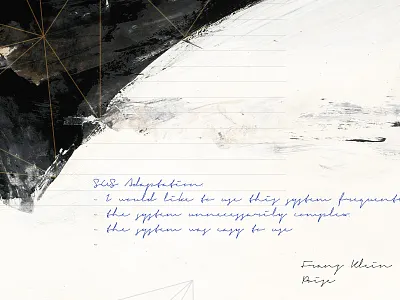 SUS Adaptation
- I would like to use this system frequent
- the system unnecessarily complex
- the system was easy to use
-
Franz Klein
Prize